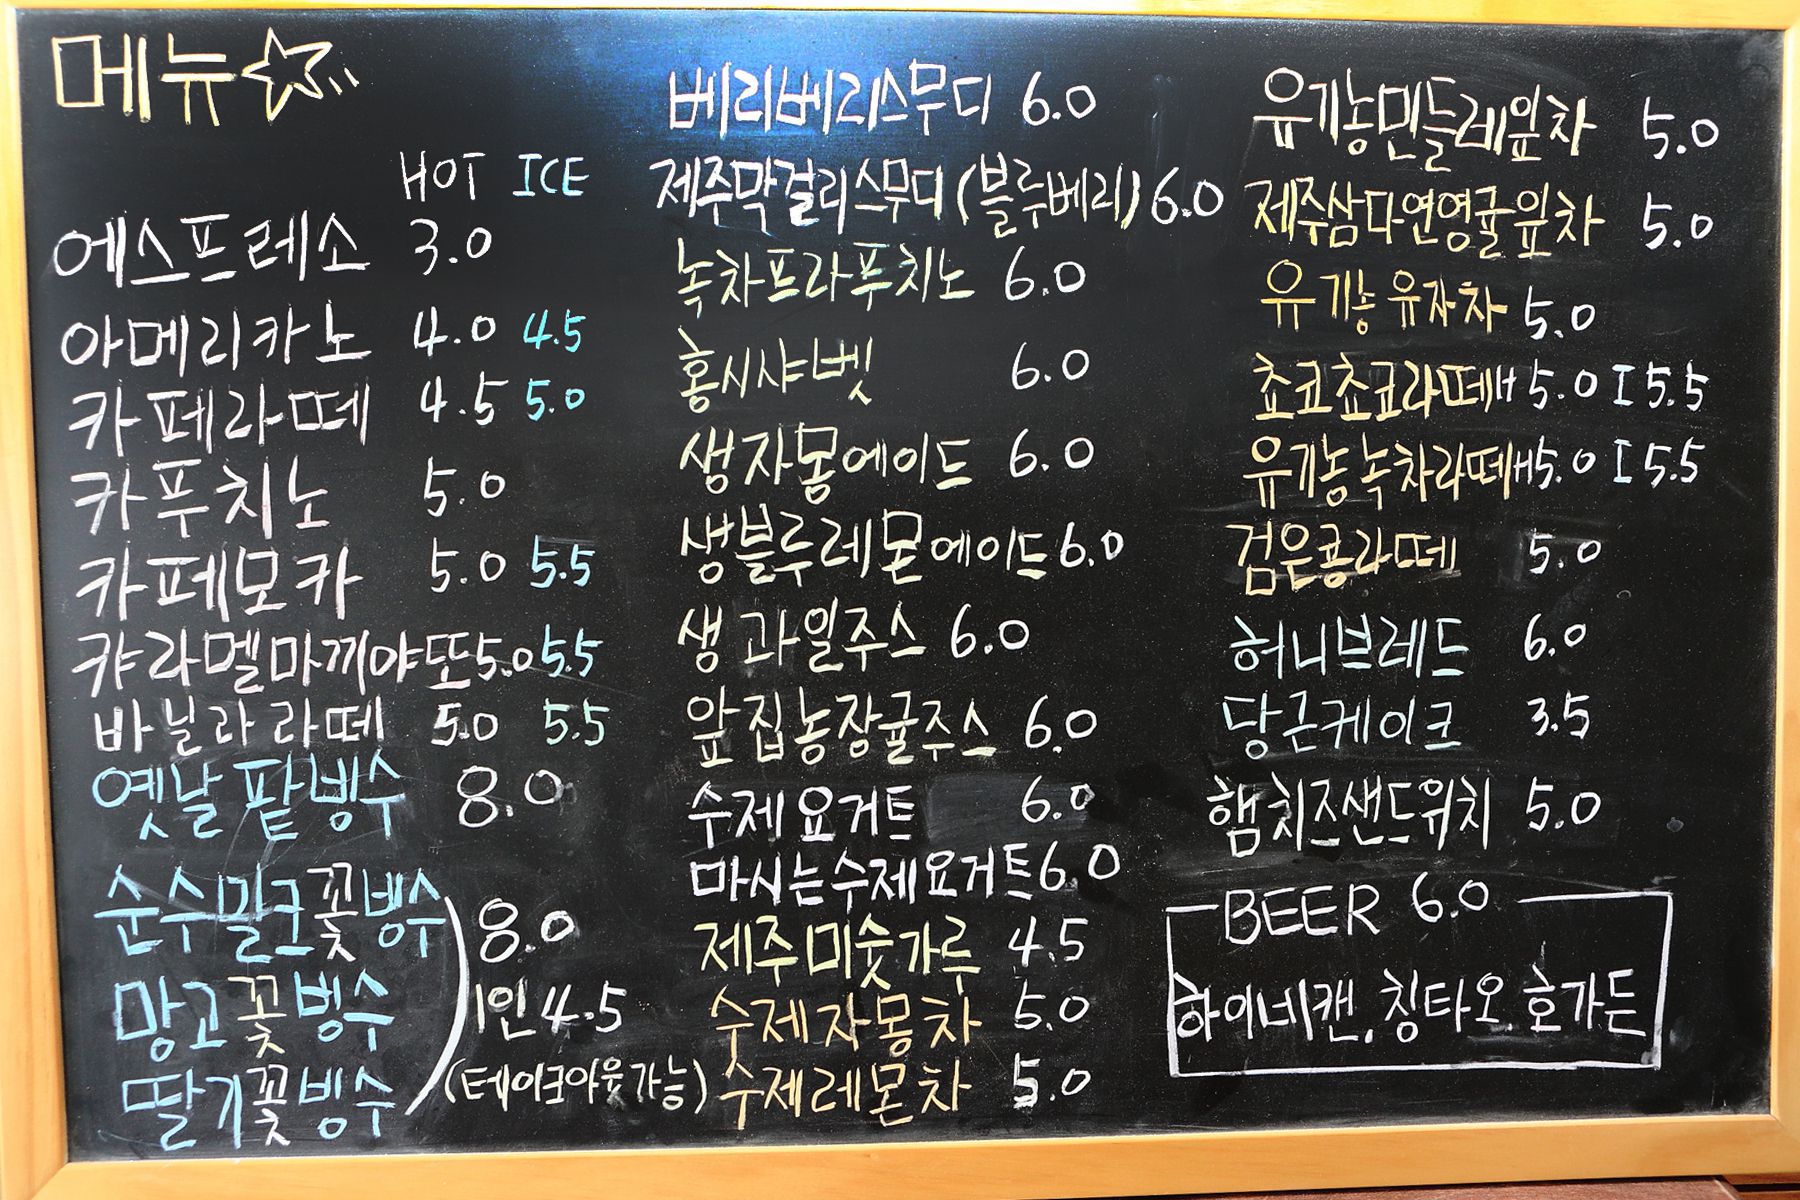 메뉴
HOT ICE
에스프레소 3.0
아메리카노 4.0 4.5
카페라떼 4.5 5.0
카푸치노 5.0
카페모카 5.0 5.5
캬라멜마끼야또 5.0 5.5
바닐라 라떼 5.0 5.5
옛날 팥빙수 8.0
순수밀크꽃빙수 8.0
망고꽃빙수 1인 4.5
딸기꽃빙수 (테이크아웃가능)
베리베리스무디 6.0
제주막걸리스무디(블루베리) 6.0
녹차프라푸치노 6.0
홍시샤벳 6.0
생자몽에이드 6.0
생블루레몬에이드 6.0
생과일주스 6.0
앞집농장귤주스 6.0
수제요거트 6.0
마시는수제요거트 6.0
제주미숫가루 4.5
수제자몽차 5.0
수제레몬차 5.0
유기농민들레잎차 5.0
제주삼다연영귤잎차 5.0
유기농 유자차 5.0
쵸코쵸코라떼 H 5.0 I 5.5
유기농녹차라떼 H 5.0 I 5.5
검은콩라떼 5.0
허니브레드 6.0
당근케이크 3.5
햄치즈샌드위치 5.0
BEER 6.0
하이네캔, 칭타오 호가든